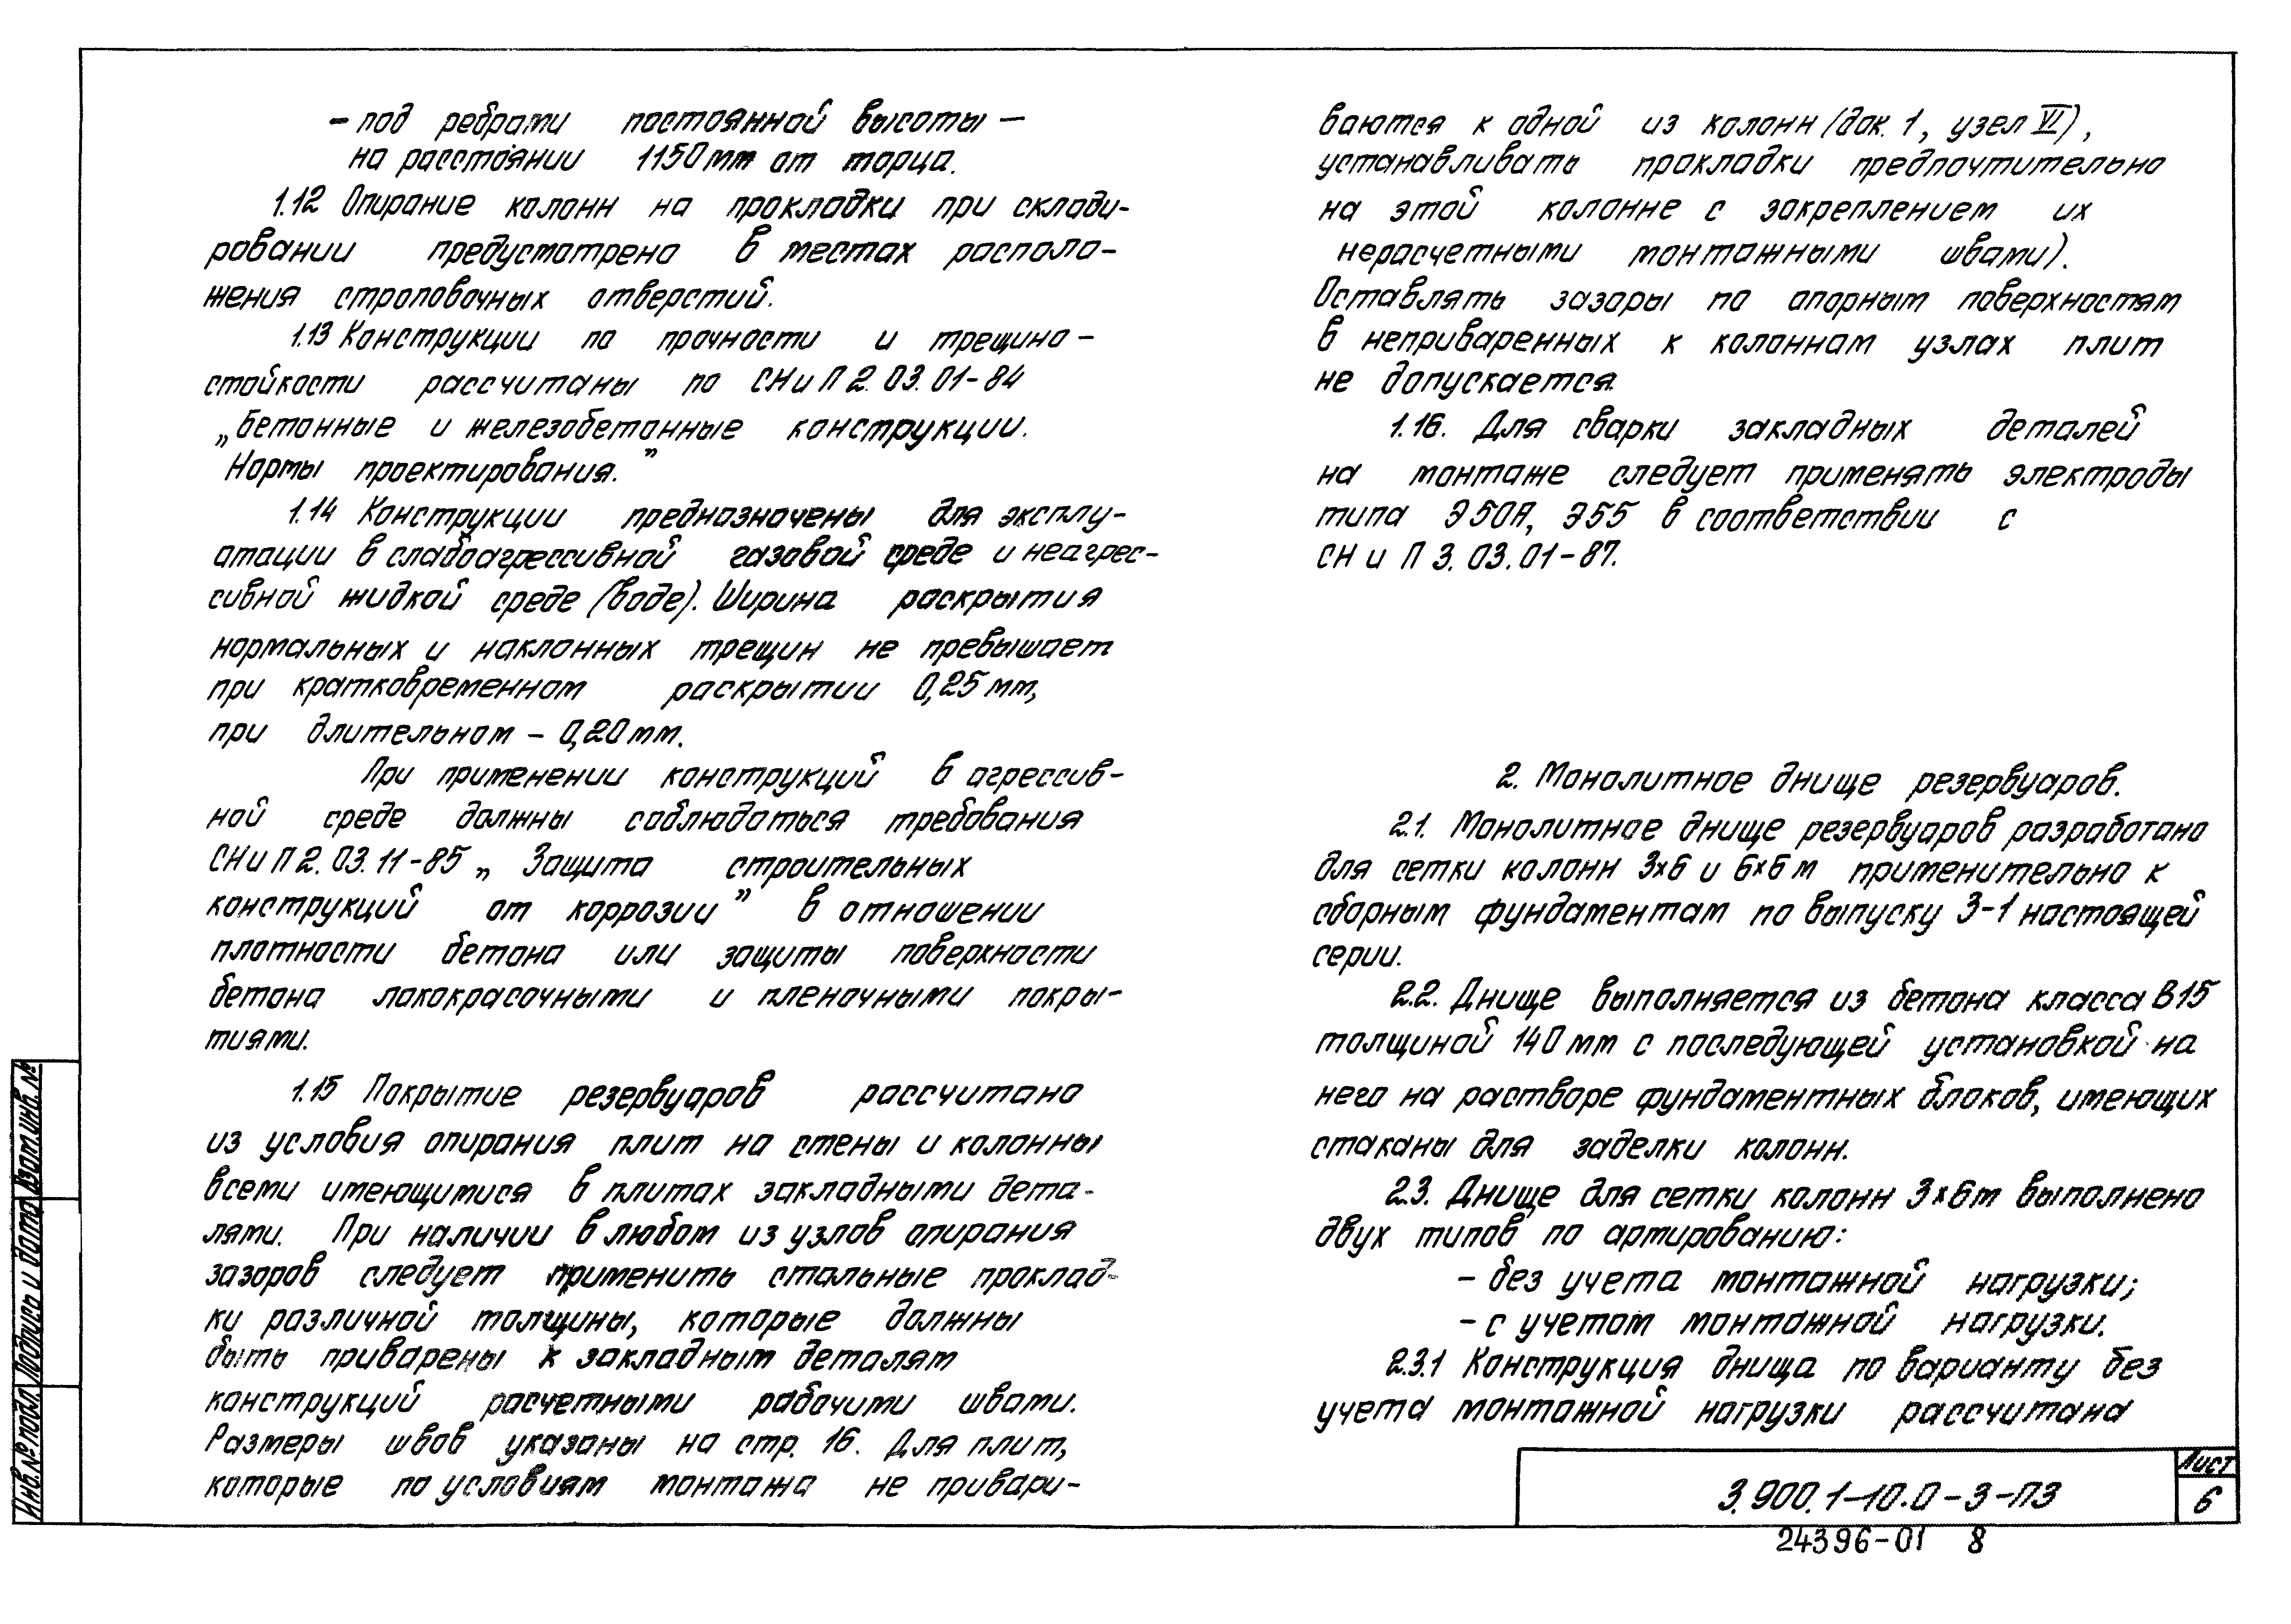 – под ребрами постоянной высоты –
на расстоянии 1150 мм от торца.
1.12 Опирание колонн на прокладки при склади-
ровании предусмотрено в местах располо-
жения строповочных отверстий.
1.13 Конструкции по прочности и трещино-
стойкости рассчитаны по СНиП 2.03.01-84
„Бетонные и железобетонные конструкции.
Нормы проектирования.”
1.14 Конструкции предназначены для эксплу-
атации в слабоагрессивной газовой среде и неагрес-
сивной жидкой среде (воде). Ширина раскрытия
нормальных и наклонных трещин не превышает
при кратковременном раскрытии 0,25 мм,
при длительном – 0,20 мм.
При применении конструкций в агрессив-
ной среде должны соблюдаться требования
СНиП 2.03.11-85 „Защита строительных
конструкций от коррозии” в отношении
плотности бетона или защиты поверхности
бетона лакокрасочными и пленочными покры-
тиями.
1.15 Покрытие резервуаров рассчитано
из условия опирания плит на стены и колонны
всеми имеющимися в плитах закладными дета-
лями. При наличии в любом из узлов опирания
зазоров следует применить стальные проклад-
ки различной толщины, которые должны
быть приварены к закладным деталям
конструкций расчетными рабочими швами.
Размеры швов указаны на стр. 16. Для плит,
которые по условиям монтажа не привари-
ваются к одной из колонн (док. 1, узел VI),
устанавливать прокладки предпочтительно
на этой колонне с закреплением их
нерасчетными монтажными швами).
Оставлять зазоры по опорным поверхностям
в неприваренных к колоннам узлах плит
не допускается.
1.16. Для сварки закладных деталей
на монтаже следует применять электроды
типа Э50А, Э55 в соответствии с
СНиП 3.03.01-87.
2. Монолитное днище резервуаров.
2.1. Монолитное днище резервуаров разработано
для сетки колонн 3х6 и 6х6 м применительно к
сборным фундаментам по выпуску 3-1 настоящей
серии.
2.2. Днище выполняется из бетона класса В15
толщиной 140 мм с последующей установкой на
него на растворе фундаментных блоков, имеющих
стаканы для заделки колонн.
2.3. Днище для сетки колонн 3х6м выполнено
двух типов по армированию:
– без учета монтажной нагрузки;
– с учетом монтажной нагрузки.
2.3.1 Конструкция днища по варианту без
учета монтажной нагрузки рассчитана
3.900.1-10.0-3-ПЗ
Лист
6
24396-01 8
Инв.№ подл. Подпись и дата Взам.инв.№